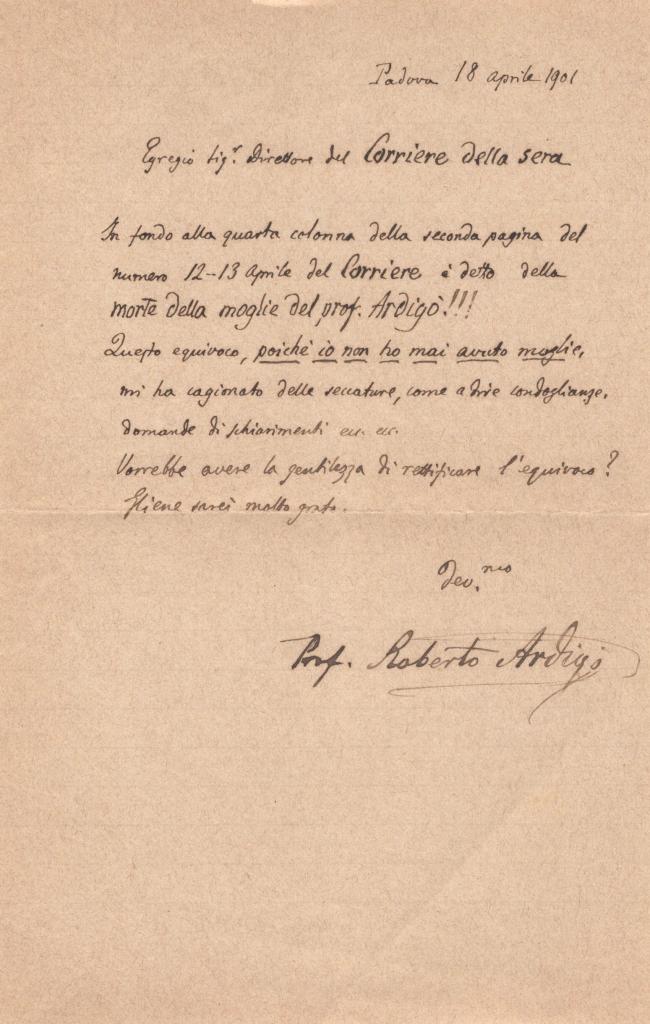 Padova 18 aprile 1901
Egregio Sigr. Direttore del Corriere della sera
In fondo alla quarta colonna della seconda pagina del
numero 12-13 aprile del Corriere è detto della
morte della moglie del prof. Ardigò!!!
Questo equivoco, poichè io non ho mai avuto moglie,
mi ha cagionato delle seccature, come a dire condoglianze,
domande di schiarimenti ecc. ecc.
Vorrebbe avere la gentilezza di rettificare l'equivoco?
Gliene sarei molto grato.
Dev.mo
Prof. Roberto Ardigò